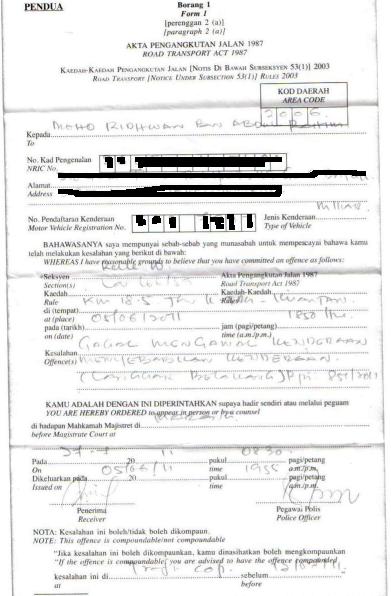 PENDUA
Borang 1
Form 1
[perenggan 2 (a)]
[paragraph 2 (a)]
AKTA PENGANGKUTAN JALAN 1987
ROAD TRANSPORT ACT 1987
KAEDAH-KAEDAH PENGANGKUTAN JALAN [NOTIS DI BAWAH SUBSEKSYEN 53(1)] 2003
ROAD TRANSPORT [NOTICE UNDER SUBSECTION 53(1)] RULES 2003
KOD DAERAH
AREA CODE
MOHD RIDHWAN BAN ABDUL
Kepada
To
No. Kad Pengenalan
NRIC No
Alamat
Address
No. Pendaftaran Kenderaan
Motor Vehicle Registration No.
Jenis Kenderaan
Type of Vehicle
BAHAWASANYA saya mempunyai sebab-sebab yang munasabah untuk mempercayai bahawa kamu
telah melakukan kesalahan yang berikut di bawah:
WHEREAS I have reasonable grounds to believe that you have committed an offence as follows:
Seksyen Akta Pengangkutan Jalan 1987
Section(s) Road Transport Act 1987
Kaedah Kaedah-Kaedah
Rule KM 18.5 Rules
di (tempat)
at (place) 05/06/2011 1850
pada (tarikh) jam (pagi/petang)
on (date) time (a.m./p.m.)
GAGAL MENGAWAL KENDERAAN
Kesalahan
Offence(s) MENYEBABKAN KENDERAAN
KAMU ADALAH DENGAN INI DIPERINTAHKAN supaya hadir sendiri atau melalui peguam
YOU ARE HEREBY ORDERED to appear in person or by a counsel
di hadapan Mahkamah Majistret di
before Magistrate Court at
11 0830
Pada 20 pukul pagi/petang
On 05/06/11 time 1955 a.m./p.m.
Dikeluarkan pada 20 pukul pagi/petang
Issued on time a.m./p.m.
Penerima Pegawai Polis
Receiver Police Officer
NOTA: Kesalahan ini boleh/tidak boleh dikompaun.
NOTE: This offence is compoundable/not compoundable
"Jika kesalahan ini boleh dikompaunkan, kamu dinasihatkan boleh mengkompaunkan
"If the offence is compoundable, you are advised to have the offence compounded
kesalahan ini di sebelum
at before